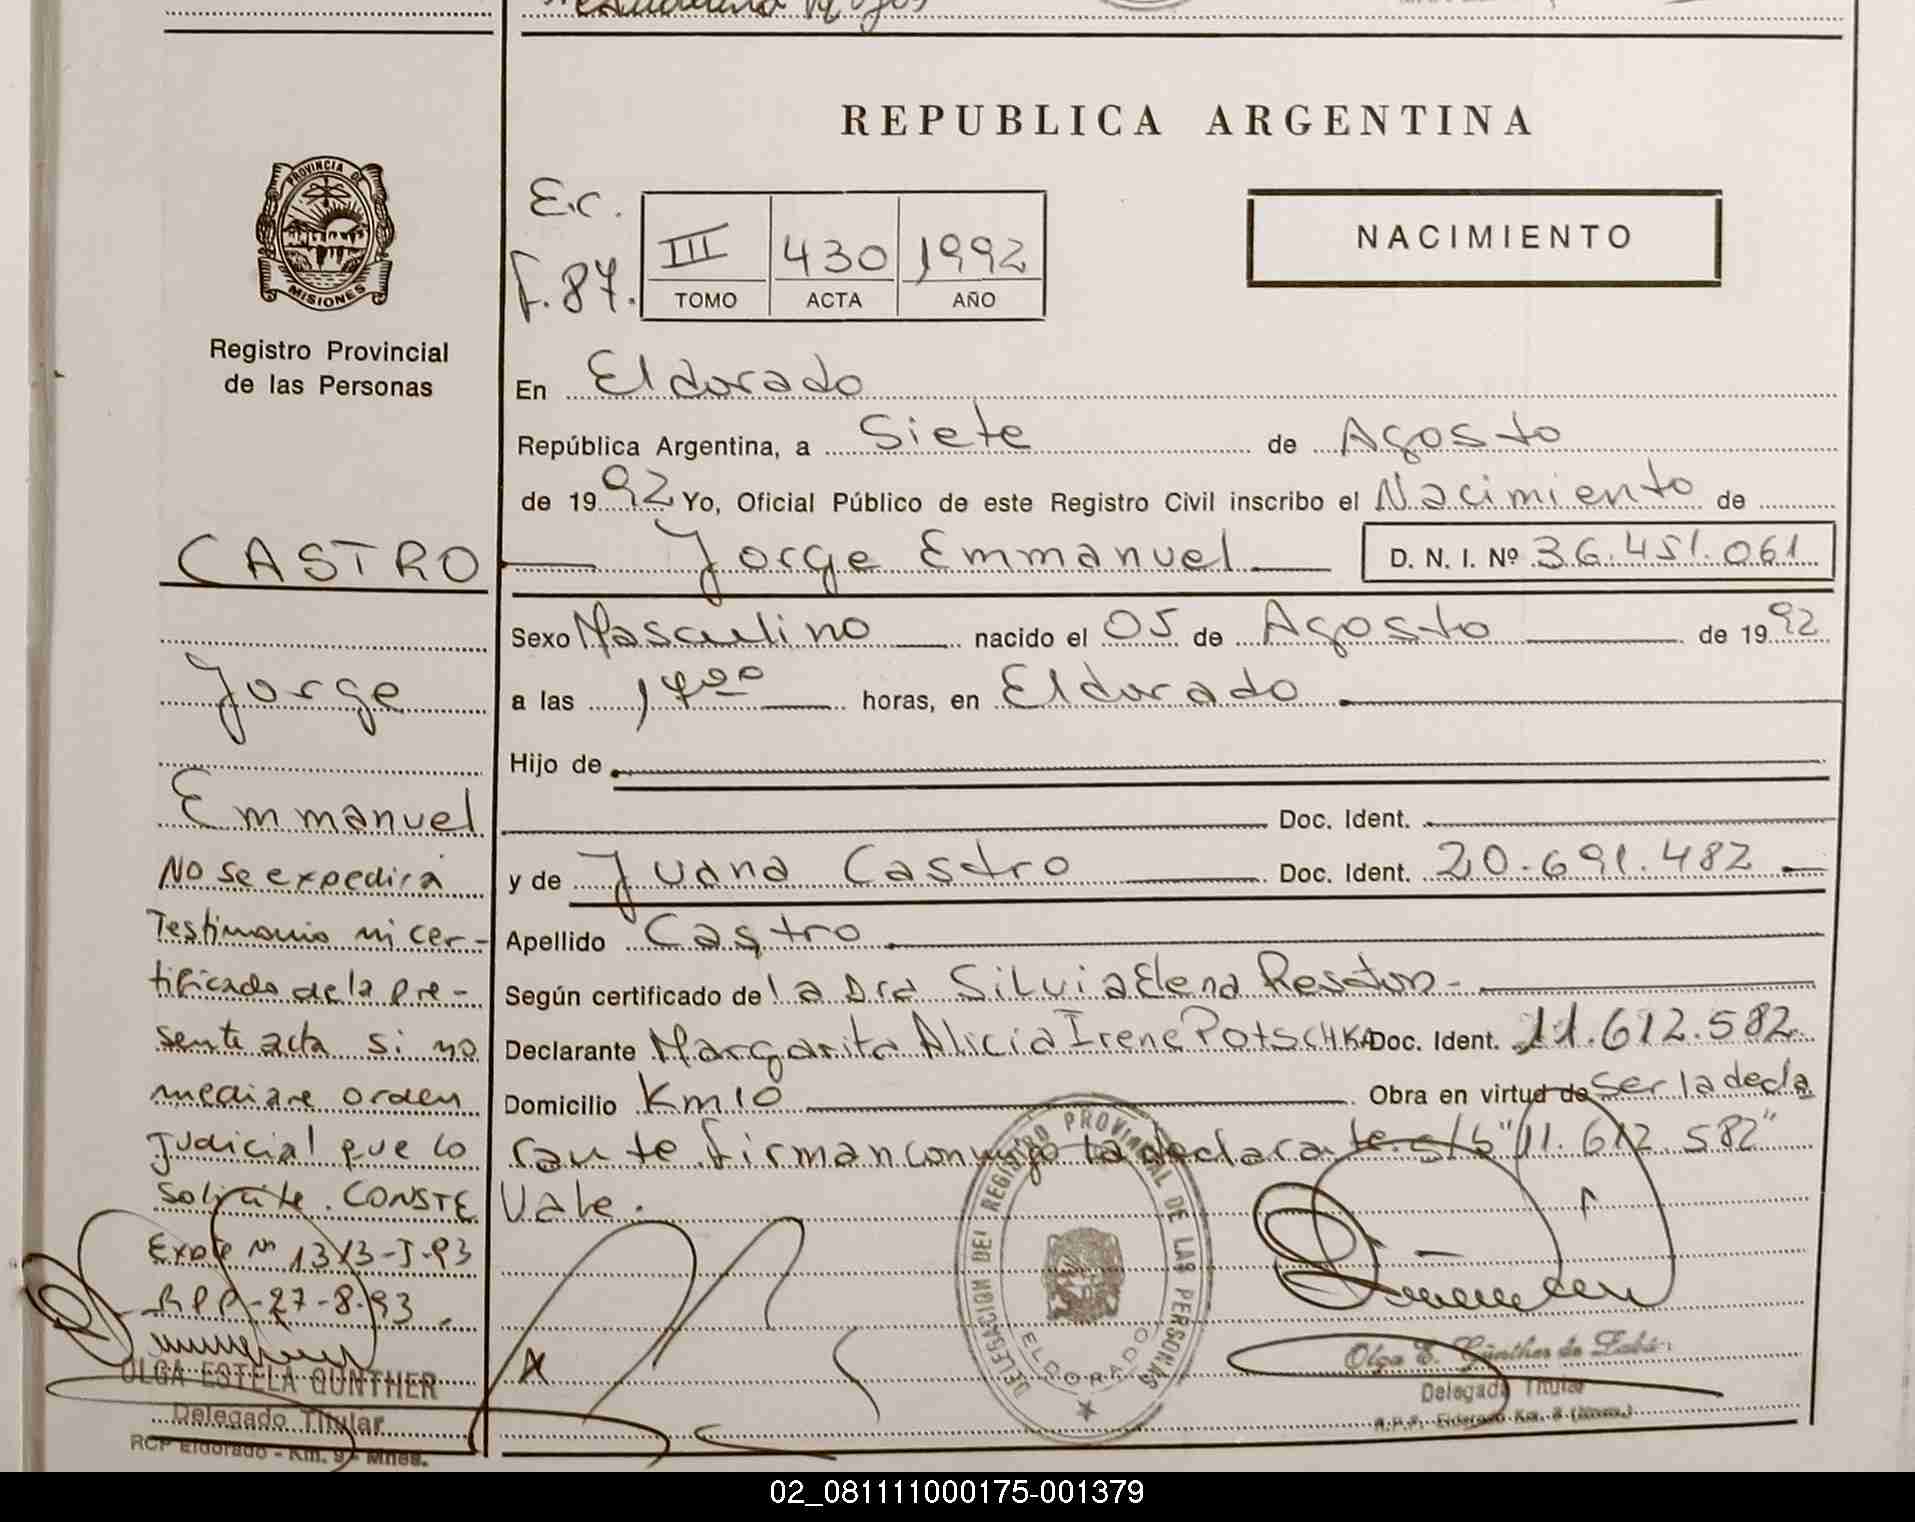 REPUBLICA ARGENTINA
PROVINCIA DE
MISIONES
Registro Provincial
de las Personas
E.c.
f.87.
III 430 1992
TOMO ACTA AÑO
NACIMIENTO
En Eldorado
República Argentina, a Siete de Agosto
de 1992 Yo, Oficial Público de este Registro Civil inscribo el Nacimiento de
CASTRO
Jorge Emmanuel D. N. I. Nº 36.451.061
Sexo Masculino nacido el 05 de Agosto de 1992
a las 14:00 horas, en Eldorado
Hijo de
Doc. Ident.
y de Juana Castro Doc. Ident. 20.691.482
Apellido Castro
Según certificado de la Dra Silvia Elena
Declarante Margarita Alicia Irene PotsCHKA Doc. Ident. 11.612.582
Domicilio Km 10 Obra en virtud de ser la decla
rante firman conmigo la declarante s/b "11.612.582"
Vale.
Jorge
Emmanuel
No se expedirá
Testimonio ni cer-
tificado de la pre-
sente acta si no
mediare orden
judicial que lo
solicite. CONSTE
Expte Nº 1313-J-93
RPP-27-8-93.
OLGA ESTELA GUNTHER
Delegado Titular
RCP Eldorado - Km. 9 - Mnes.
DELEGACION DEL REGISTRO PROVINCIAL DE LAS PERSONAS
ELDORADO
Olga E. Günther de
Delegada Titular
02_081111000175-001379